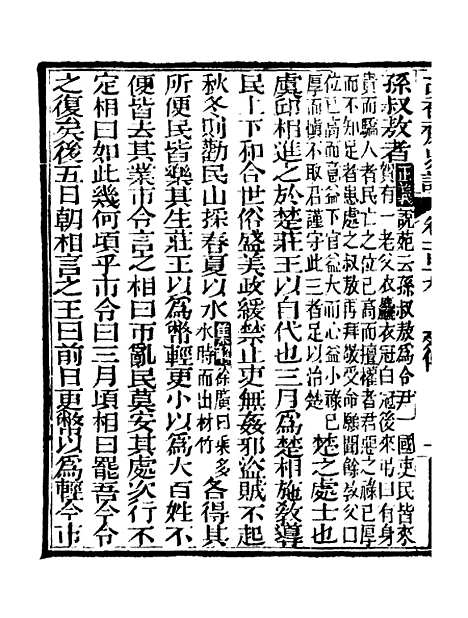 孫叔敖者正義說苑云孫叔敖為令尹一國吏民皆來
賀有一老父衣麤衣冠白冠後來弔曰有身
貴而驕人者民亡之位已高而擅權者君惡之祿已厚
而不知足者患處之叔敖再拜敬受命願聞餘敎父曰
位已高而意益下官益大而心益小祿已
厚而愼不取君謹守此三者足以治楚
楚之處士也
虞丘相進之於楚莊王以自代也三月爲楚相施敎導
民上下和合世俗盛美政緩禁止吏無姦邪盜賊不起
秋冬則勸民山採春夏以水集解徐廣曰乘多水時而出材竹各得其
所便民皆樂其生莊王以爲幣輕更小以爲大百姓不
便皆去其業市令言之相曰市亂民莫安其處次行不
定相曰如此幾何頃乎市令曰三月頃相曰罷吾今令
之復矣後五日朝相言之王曰前日更幣以爲輕今市